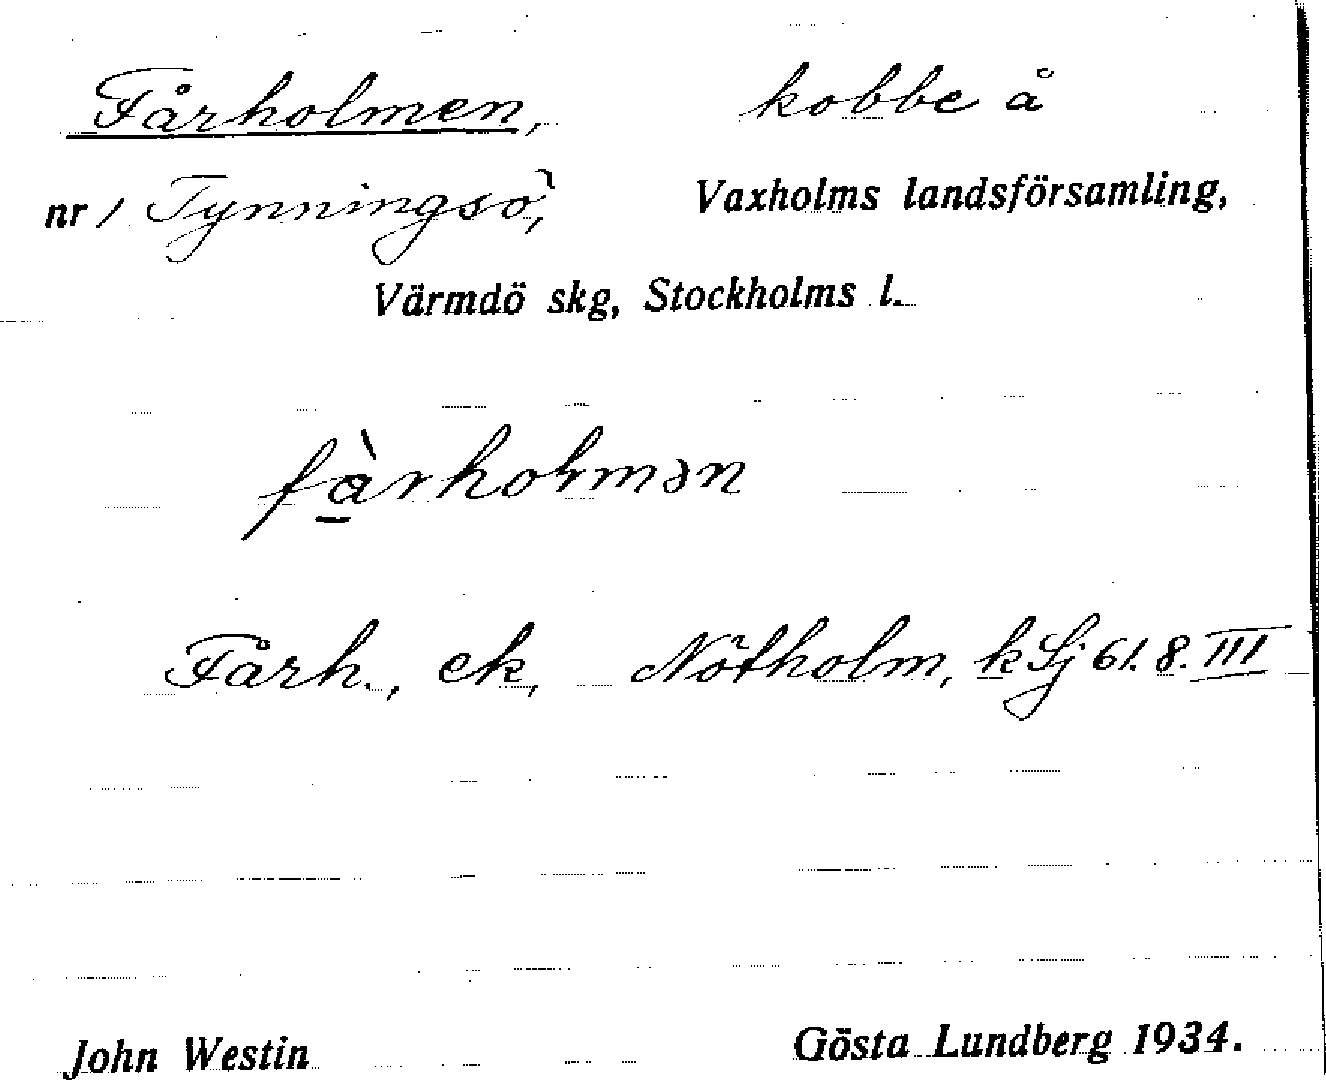 Fårholmen, kobbe å
nr 1 Tynningsö, Vaxholms landsförsamling,
Värmdö skg, Stockholms l.
fàrholmən
Fårh., ek, Nötholm, k Sj 61. 8. III
John Westin Gösta Lundberg 1934.